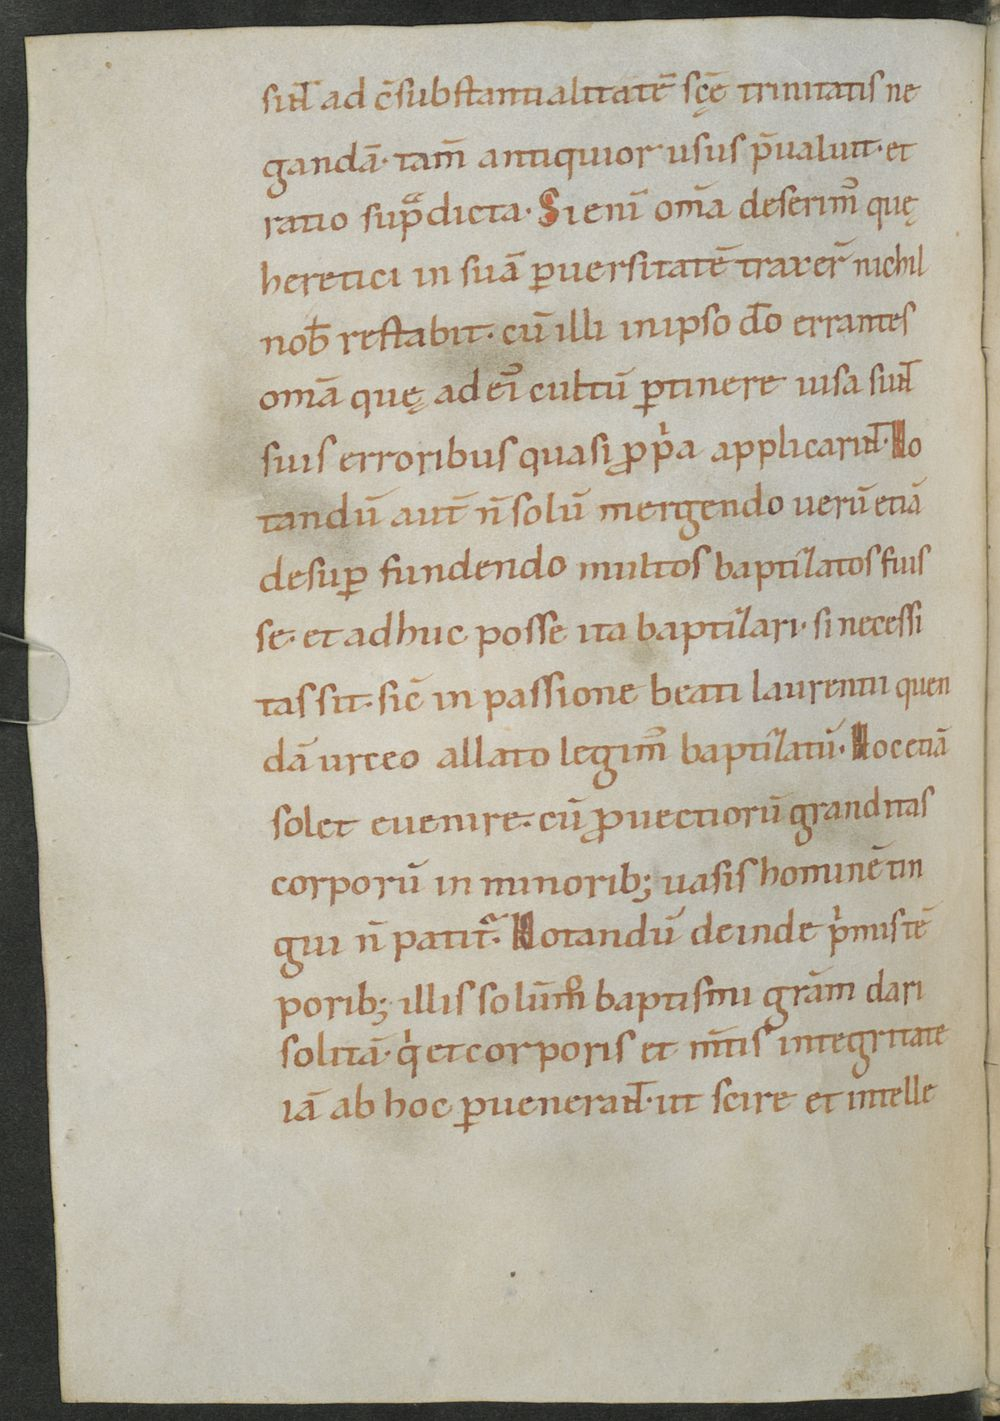 sint ad c̄substantialitatē sc̄ę trinitatis ne
gandā· tam̄ antiquior usus p̄ualuit· et
ratio sup̄dicta· Si eni̅ om̄a deserim᷒ quę
heretici in suā ꝑuersitatē traxer̄ nichil
nob̄ restabit· cū illi in ipso do̅ errantes
om̄a quę ad ei᷒ cultū ꝑtinere uisa sunt
suis erroribus quasi ꝓpͥa applicarint· No
tandū aut̄ n̄ solū mergendo uerū etiā
desuꝑ fundendo multos baptizatos fuis
se· et adhuc posse ita baptizari· si necessi
tas sit· sic̄ in passione beati laurentii quen
dā urceo allato legim᷒ baptizatū· Hoc etiā
solet euenire· cū ꝓuectiorū granditas
corporū in minorib; uasis hominē tin
gui n̄ patit᷑· Notandū deinde pͥmis tē
porib; illis solūm̊ baptismi gr̄am dari
solitā· qͥ et corporis et m̄tis integritate
iā ab hoc ꝑuenerant· ut scire et intelle